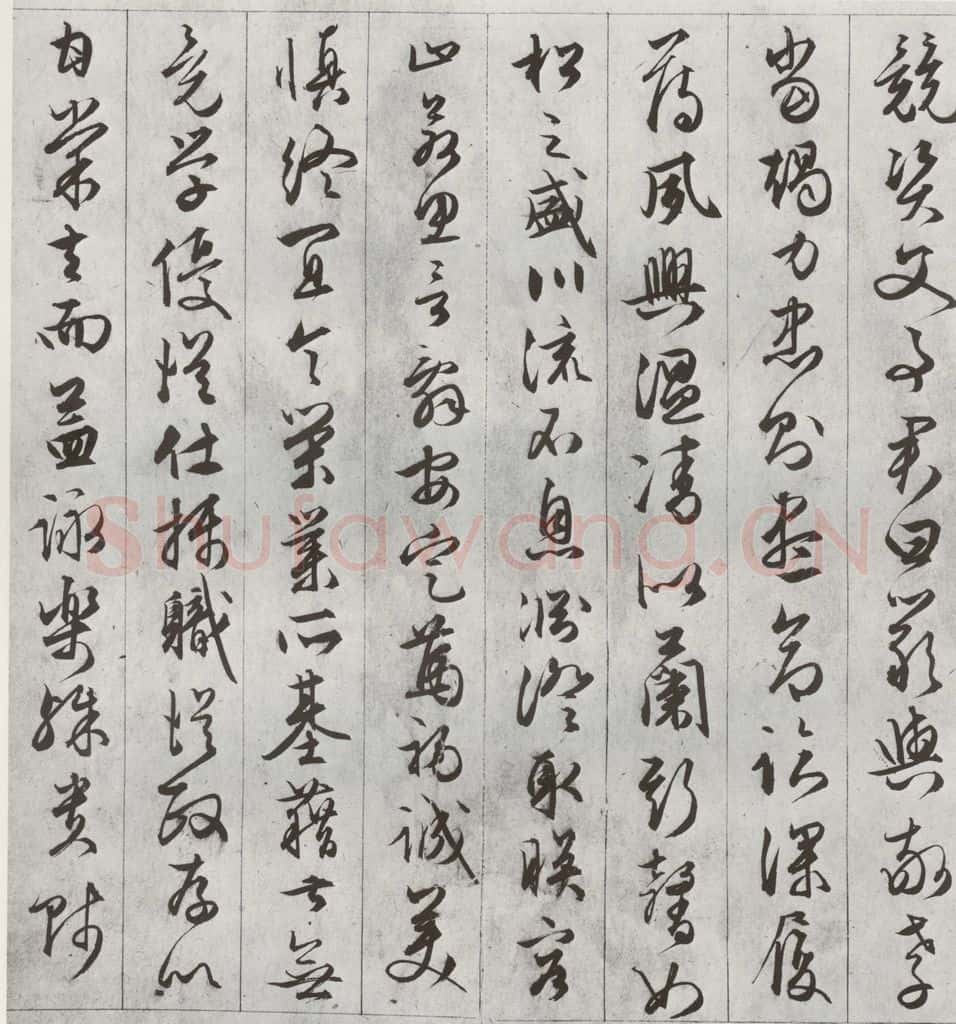 競資父事君曰嚴與敬孝
當竭力忠則盡命臨深履
薄夙興溫清似蘭斯馨如
松之盛川流不息淵澄取暎容
止若思言辭安定篤初誠美
慎終宜令榮業所基藉甚無
竟學優登仕攝職從政存以
甘棠去而益詠樂殊貴賤
Shufawang.CN